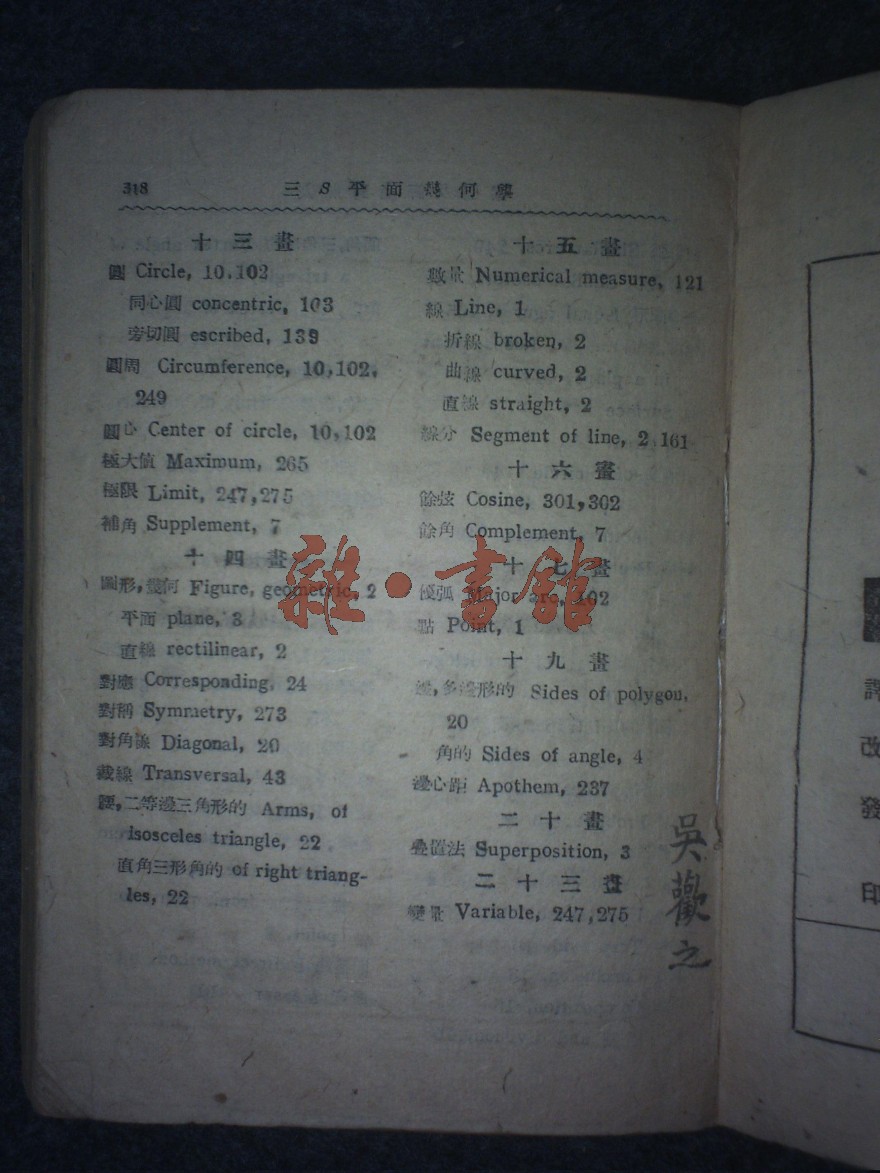 318 三 S 平 面 幾 何 學
十 三 畫
圓 Circle, 10,102
同心圓 concentric, 103
旁切圓 escribed, 139
圓周 Circumference, 10,102,
249
圓心 Center of circle, 10,102
極大値 Maximum, 265
極限 Limit, 247,275
補角 Supplement, 7
十 四 畫
圖形,幾何 Figure, geometric, 2
平面 plane, 3
直線 rectilinear, 2
對應 Corresponding, 24
對稱 Symmetry, 273
對角線 Diagonal, 20
截線 Transversal, 43
腰,二等邊三角形的 Arms, of
isosceles triangle, 22
直角三形角的 of right triang-
les, 22
十 五 畫
數量 Numerical measure, 121
線 Line, 1
折線 broken, 2
曲線 curved, 2
直線 straight, 2
線分 Segment of line, 2,161
十 六 畫
餘弦 Cosine, 301,302
餘角 Complement, 7
十 七 畫
優弧 Major arc, 102
點 Point, 1
十 九 畫
邊,多邊形的 Sides of polygon,
20
角的 Sides of angle, 4
邊心距 Apothem, 237
二 十 畫
疊置法 Superposition, 3
二 十 三 畫
變量 Variable, 247,275
吳歡之
雜·書館
譯
改
發
印